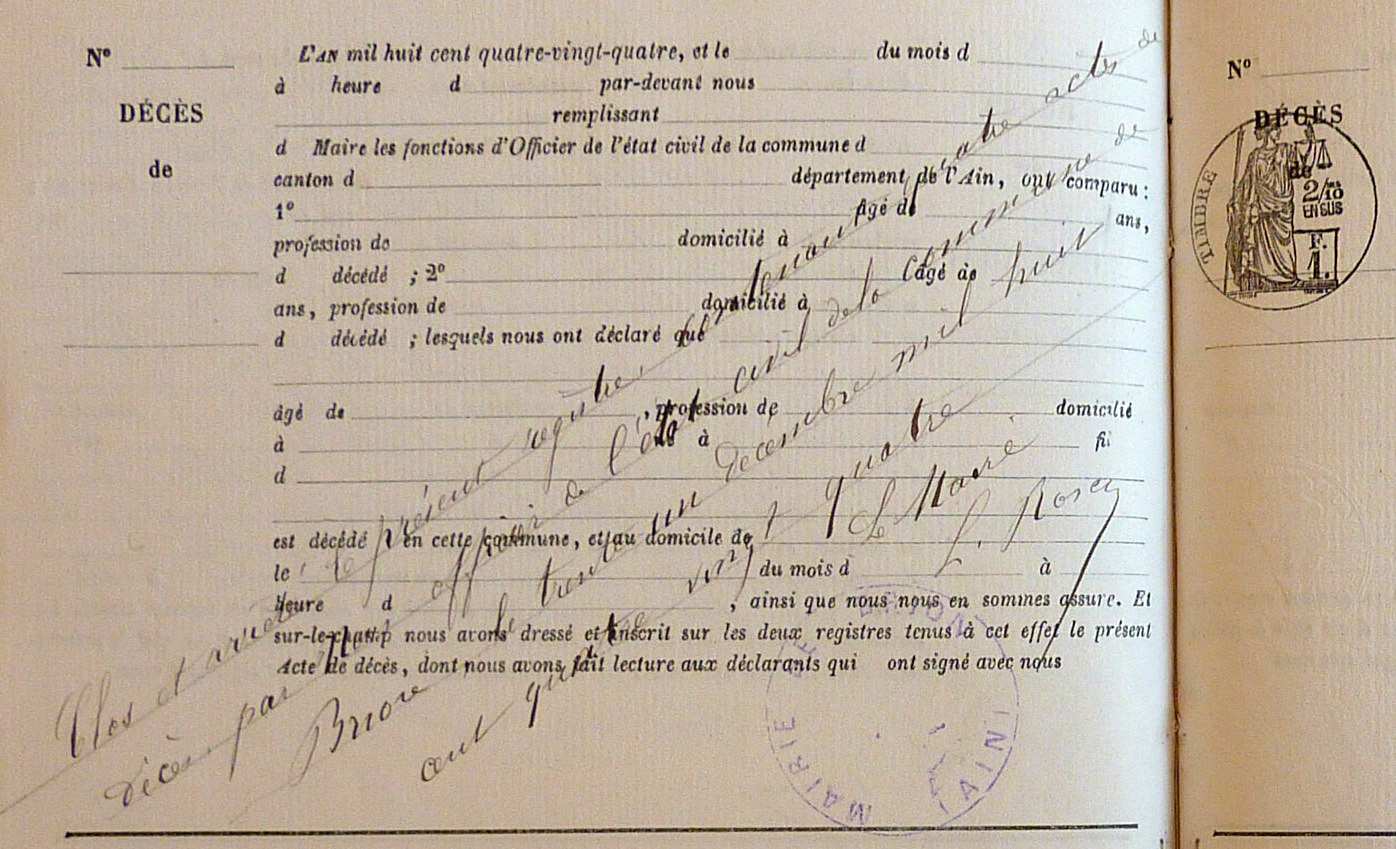 Nº
DÉCÈS
de
L'AN mil huit cent quatre-vingt-quatre, et le du mois d
à heure d par-devant nous
remplissant
d Maire les fonctions d'Officier de l'état civil de la commune d
canton d département de l'Ain, ont comparu :
1º âgé de ans,
profession de domicilié à
d décédé ; 2º âgé de
ans, profession de domicilié à
d décédé ; lesquels nous ont déclaré que
âgé de , profession de domicilié
à né à
fi
d
est décédé en cette commune, et au domicile de
le du mois d à
heure d , ainsi que nous nous en sommes assuré. Et
sur-le-champ nous avons dressé et inscrit sur les deux registres tenus à cet effet le présent
Acte de décès, dont nous avons fait lecture aux déclarants qui ont signé avec nous
Clos et arrêté le présent registre, contenant quatre actes de
décès par nous officier de l'état civil de la commune de
le trente un décembre mil huit
cent quatre vingt quatre
Le Maire
MAIRIE
AIN
Nº
DÉCÈS
de
TIMBRE
2/10
EN SUS
F.
1.